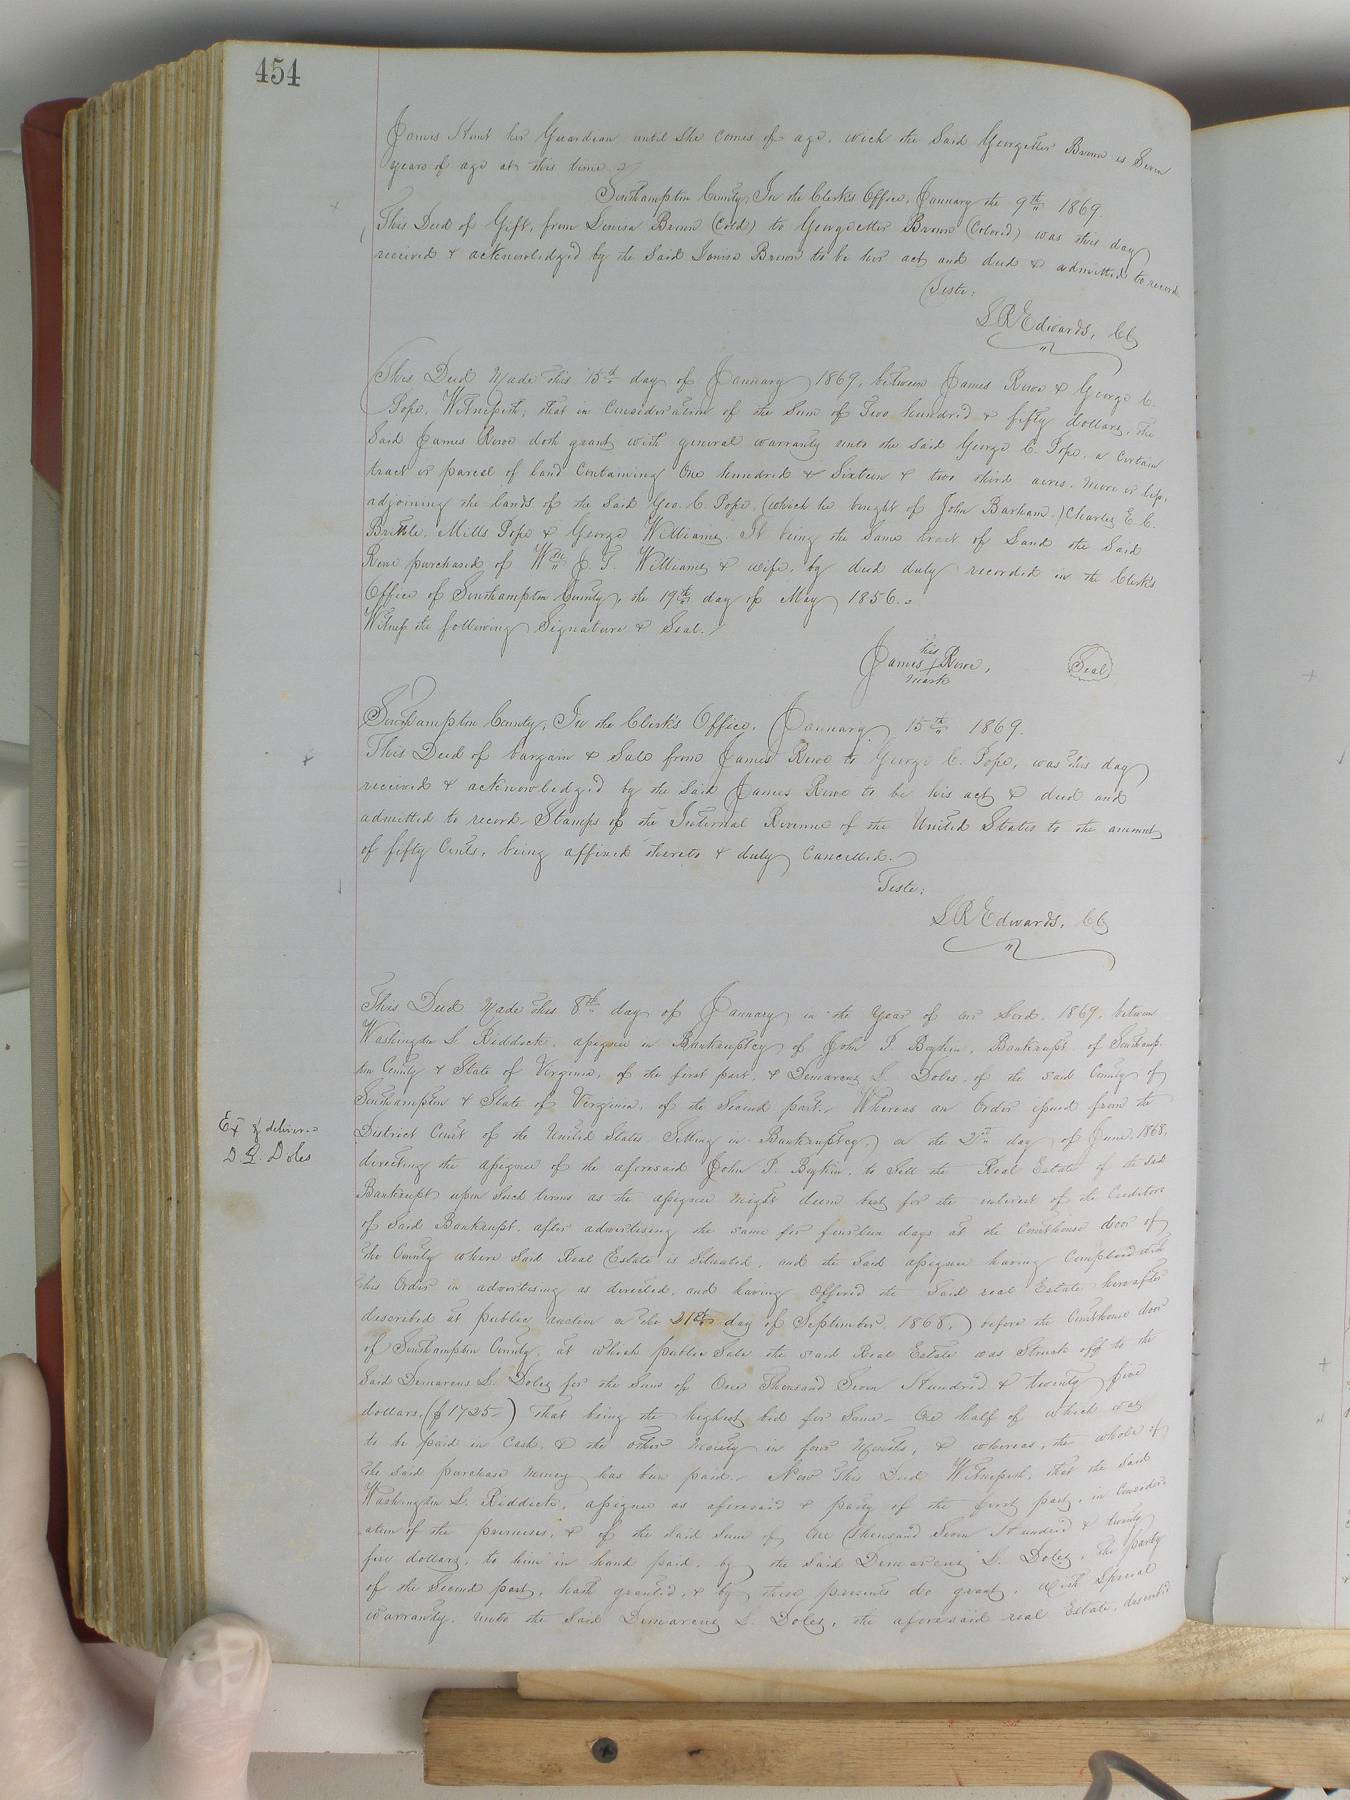 454
James Hunt her Guardian until She comes of age, wich the Said Georgetter Brown is Seven
years of age at this time
Southampton County, In the Clerk's Office, January the 9th 1869.
This Deed of Gift, from Louisa Brown (Cold) to Georgetter Brown (Colored) was this day
received & acknowledged by the Said Louisa Brown to be her act and deed & admitted to record
Teste:
L R Edwards, CC
This Deed Made this 15th day of January 1869, between James Rowe & George C.
Pope, Witnesseth, that in Consideration of the Sum of Two hundred & fifty dollars, the
Said James Rowe doth grant with general warranty unto the Said George C. Pope, a Certain
tract or parcel of land Containing One hundred & Sixteen & two third acres, more or less,
adjoining the lands of the Said Geo. C. Pope, (which he bought of John Barham,) Charles E. C.
Brittle, Mills Pope & George Williams. It being the Same tract of Land the Said
Rowe purchased of Wm J. T. Williams & wife, by deed duly recorded in the Clerk's
Office of Southampton County, the 19th day of May 1856.
Witness the following Signature & Seal.
his
James Rowe, Seal
mark
Southampton County, In the Clerk's Office, January 15th 1869.
This Deed of bargain & Sale from James Rowe to George C. Pope, was this day
received & acknowledged by the Said James Rowe to be his act & deed and
admitted to record. Stamps of the Internal Revenue of the United States to the amount
of fifty Cents, being affixed thereto & duly Cancelled.
Teste:
L R Edwards, CC
This Deed Made this 8th day of January in the Year of our Lord, 1869, between
Washington L Riddick, assignee in Bankruptcy of John T. Boykin, Bankrupt, of Southamp-
ton County & State of Virginia, of the first part, & Demareus L. Doles, of the said County of
Southampton & State of Virginia, of the Second part. Whereas an Order issued from the
Ex & deliver
D. L. Doles
District Court of the United States Sitting in Bankruptcy on the 2nd day of June 1868,
directing the assignee of the aforesaid John T. Boykin, to Sell the Real Estate of the said
Bankrupt upon Such terms as the assignee might deem best for the interest of the Creditors
of Said Bankrupt, after advertising the same for fourteen days at the Courthouse door of
the County where Said Real Estate is Situated, and the Said assignee having Complied with
this Order in advertising as directed, and having Offered the Said real Estate hereafter
described at public auction on the 21st day of September 1868, before the Courthouse door
of Southampton County, at which public Sale the said Real Estate was Struck off to the
Said Demareus L. Doles for the Sum of One Thousand Seven Hundred & twenty five
dollars, ($1725-) that being the highest bid for Same. One half of which was
to be paid in Cash, & the other Moiety in four Months, & whereas, the whole of
the Said purchase money has been paid. Now This Deed Witnesseth, that the said
Washington L. Riddick, assignee as aforesaid & party of the first part, in Consider-
ation of the premises, & of the Said Sum of One thousand Seven Hundred & twenty
five dollars, to him in hand paid, by the Said Demareus L. Doles, the party
of the Second part, hath granted, & by these presents do grant, with Special
warranty, unto the Said Demareus L. Doles, the aforesaid real Estate, described